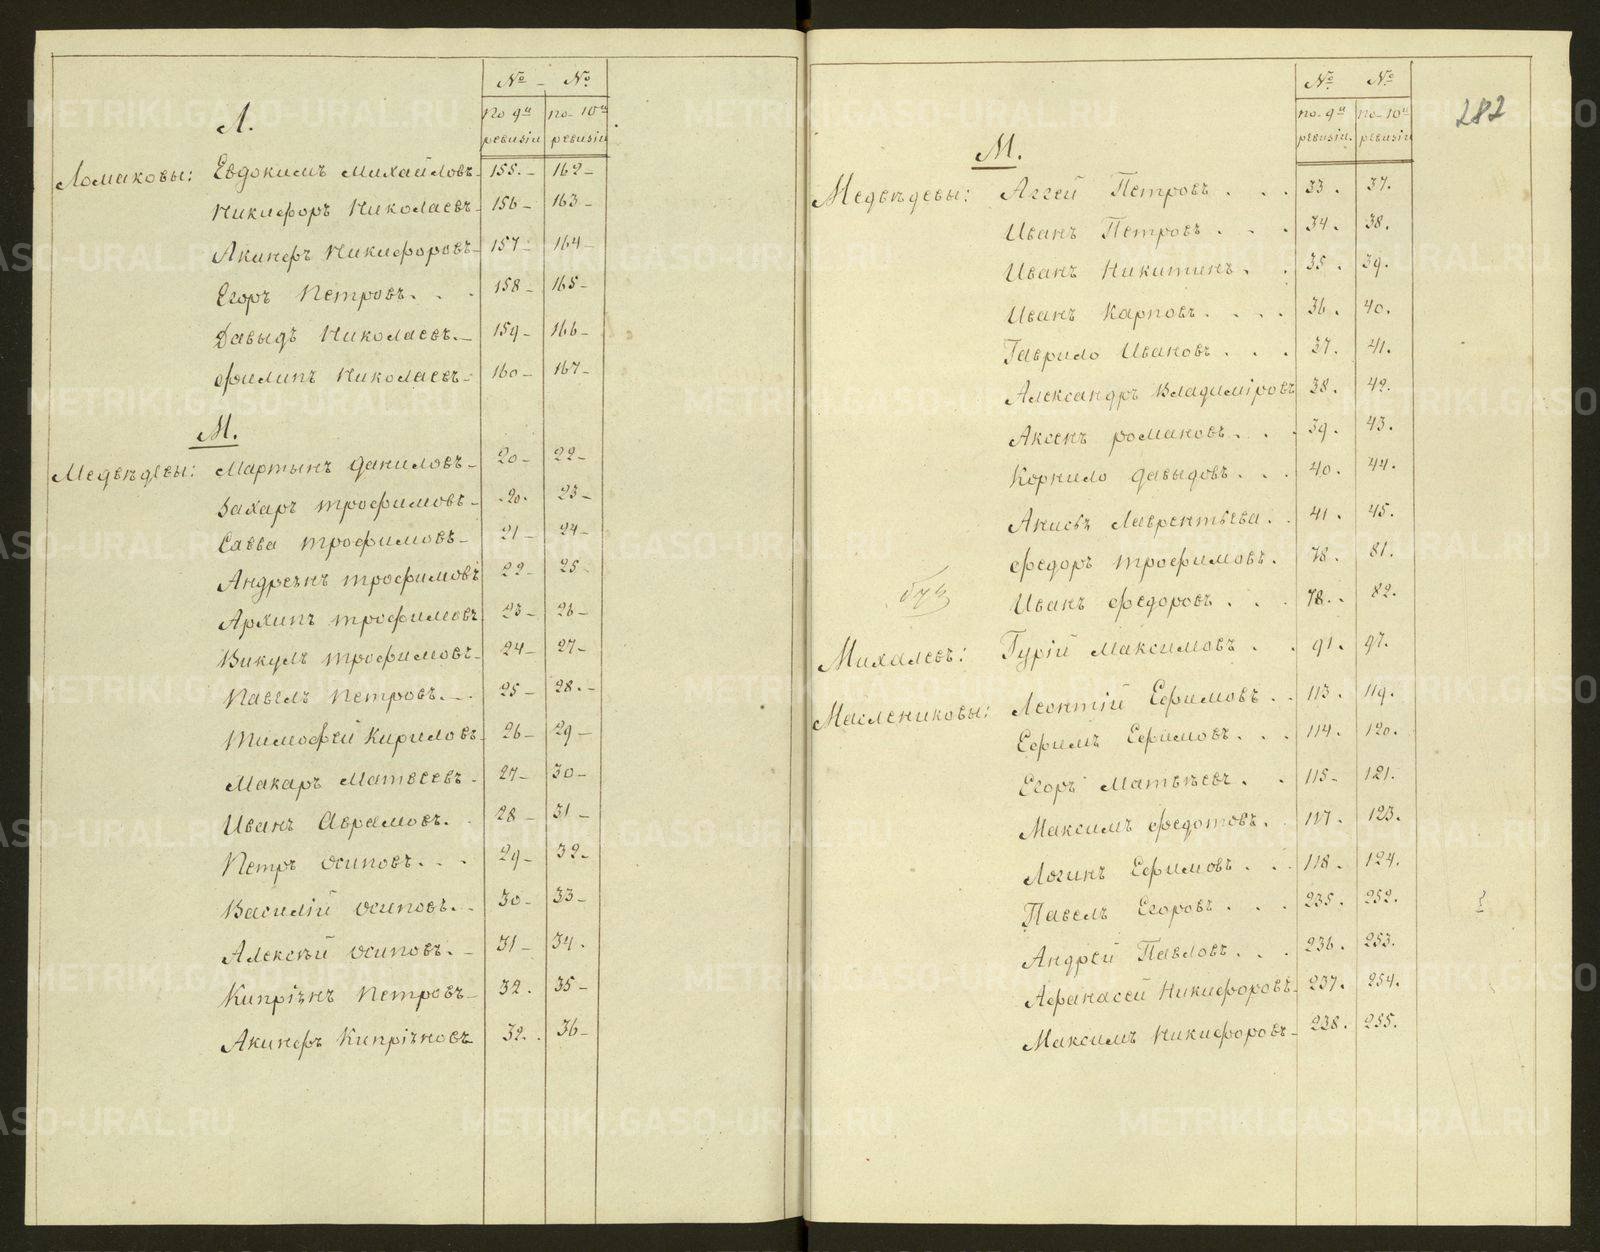 № - №
по 9й по 10й
ревизіи ревизіи
Л.
Ломаковы: Евдокимъ Михайловъ 155. 162
Никифоръ Николаевъ 156 163
Акинфъ Никифоровъ 157 164
Егоръ Петровъ. . . 158 165
Давыдъ Николаевъ. 159 166
Филипъ Николаевъ 160 167
М.
Медвѣдевы: Мартынъ Даниловъ 20 22
Захаръ Трофимовъ 20. 23
Савва Трофимовъ 21 24
Андреянъ Трофимовъ 22 25
Архипъ Трофимовъ 23 26
Викулъ Трофимовъ 24 27
Павелъ Петровъ. 25 28.
Тимофей Кириловъ 26 29
Макаръ Матвеевъ 27 30
Иванъ Аврамовъ. 28 31
Петръ Осиповъ. . . 29 32
Василій Осиповъ. . 30 33
Алексѣй Осиповъ. 31 34.
Кипріянъ Петровъ 32. 35
Акинфъ Кипріяновъ 32. 36
№ №
по 9й по 10й
ревизіи. ревизіи
282
М.
Медвѣдевы: Аггей Петровъ . . . 33. 37.
Иванъ Петровъ . . . 34. 38.
Иванъ Никитинъ. . 35. 39.
Иванъ Карповъ. . . . 36. 40.
Гаврило Ивановъ . . . 37. 41.
Александръ Владиміровъ 38. 42.
Аксенъ Романовъ. . . 39. 43.
Корнило Давыдовъ. . . 40. 44.
Анисья Лаврентьева. . 41. 45.
Федоръ Трофимовъ. 78. 81.
Иванъ Федоровъ . . . 78. 82.
Михалевъ: Гурій Максимовъ . . 91. 97.
Маслениковы: Леонтій Ефимовъ . . 113. 119.
Ефимъ Ефимовъ. . . 114. 120.
Егоръ Матвѣевъ . . 115- 121.
Максимъ Федотовъ. . 117. 123.
Логинъ Ефимовъ . . 118. 124.
Павелъ Егоровъ . . . 235. 252.
Андрей Павловъ . . . 236. 253.
Афанасей Никифоровъ 237. 254.
Максимъ Никифоровъ 238. 255.